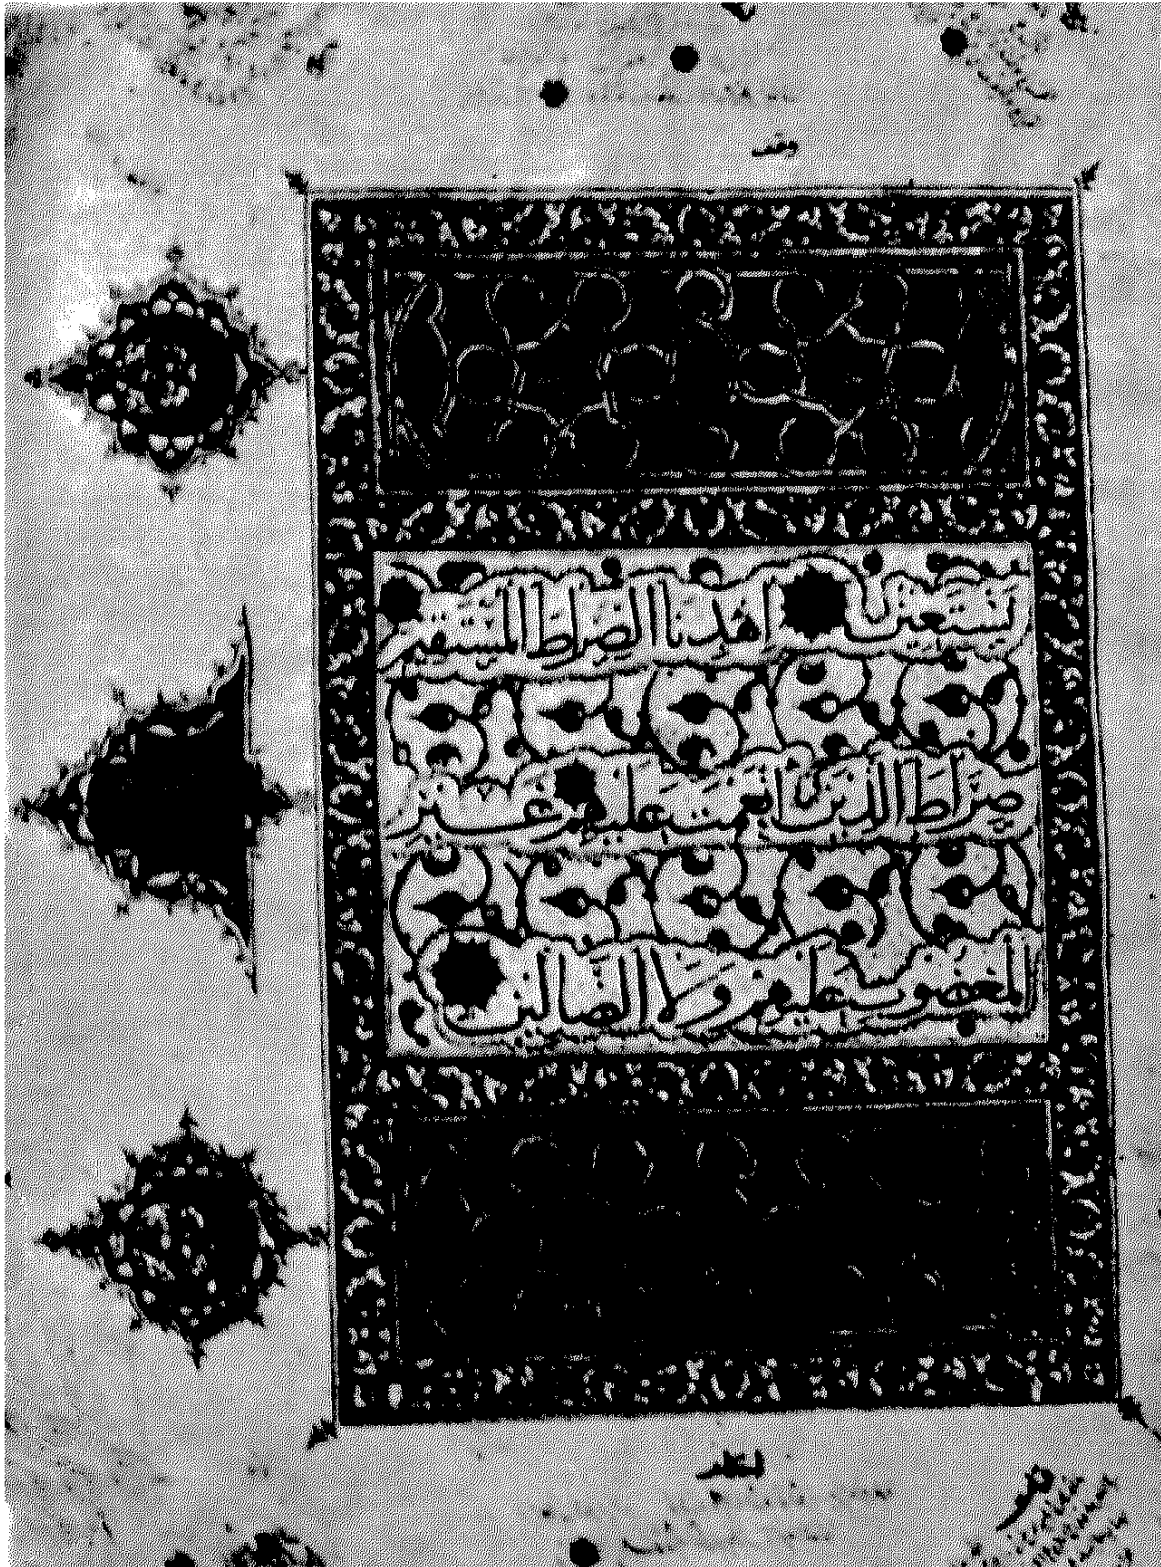 وقف
نستعين اهدنا الصراط المستقيم
صراط الذين انعمت عليهم غير
المغضوب عليهم ولا الضالين